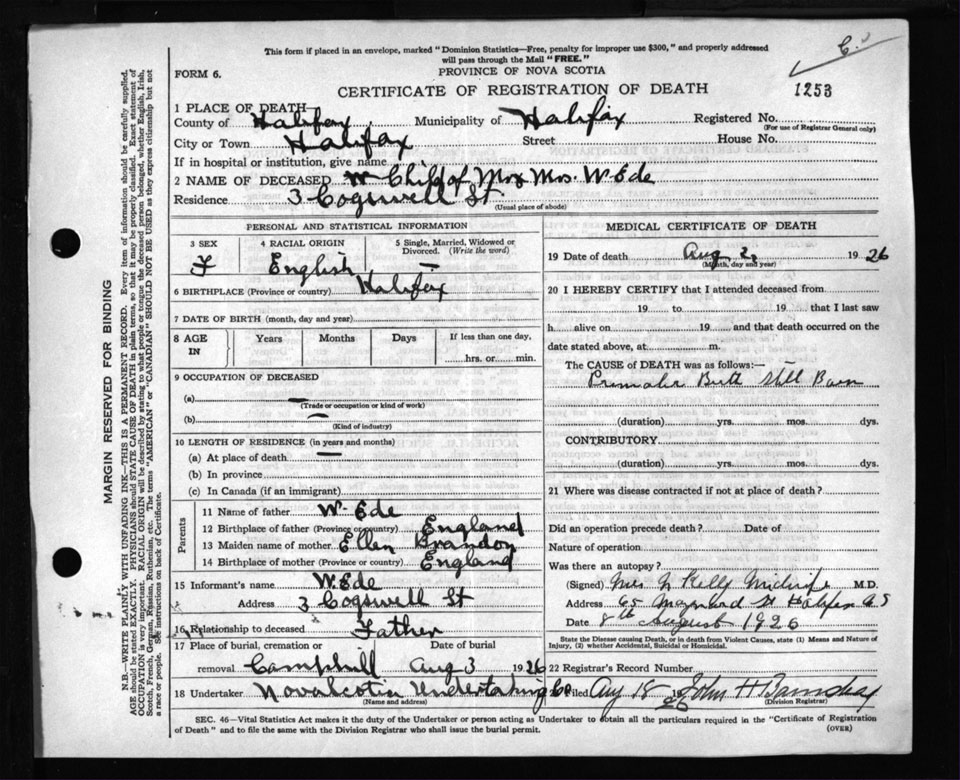 This form if placed in an envelope, marked "Dominion Statistics—Free, penalty for improper use $300," and properly addressed
will pass through the Mail "FREE."
FORM 6.
PROVINCE OF NOVA SCOTIA
CERTIFICATE OF REGISTRATION OF DEATH
1253
1 PLACE OF DEATH
County of Halifax Municipality of Halifax Registered No.
(For use of Registrar General only)
City or Town Halifax Street House No.
If in hospital or institution, give name
2 NAME OF DECEASED Child of Mr & Mrs. W. Ede
Residence 3 Cogswell St
(Usual place of abode)
PERSONAL AND STATISTICAL INFORMATION
3 SEX 4 RACIAL ORIGIN 5 Single, Married, Widowed or
Divorced. (Write the word)
F English —
6 BIRTHPLACE (Province or country) Halifax
7 DATE OF BIRTH (month, day and year)
8 AGE Years Months Days If less than one day,
IN hrs. or min.
9 OCCUPATION OF DECEASED
(a) —
(Trade or occupation or kind of work)
(b) —
(Kind of industry)
10 LENGTH OF RESIDENCE (in years and months)
(a) At place of death —
(b) In province
(c) In Canada (if an immigrant)
Parents
11 Name of father W. Ede
12 Birthplace of father (Province or country) England
13 Maiden name of mother Ellen Brandon
14 Birthplace of mother (Province or country) England
15 Informant's name W. Ede
Address 3 Cogswell St
16 Relationship to deceased Father
17 Place of burial, cremation or Date of burial
removal Camphill Aug 3 1926
18 Undertaker Novascotia Undertaking Co
(Name and address)
MEDICAL CERTIFICATE OF DEATH
19 Date of death Aug 2 1926
(Month, day and year)
20 I HEREBY CERTIFY that I attended deceased from
19 to 19 that I last saw
h alive on 19 and that death occurred on the
date stated above, at m.
The CAUSE OF DEATH was as follows:
Birth Still Born
(duration) yrs. mos. dys.
CONTRIBUTORY
(duration) yrs. mos. dys.
21 Where was disease contracted if not at place of death?
Did an operation precede death? Date of
Nature of operation
Was there an autopsy?
(Signed) Mrs Kelly Midwife M.D.
Address 65 Maynard St Halifax N S
Date 8th August 1926
State the Disease causing Death, or in death from Violent Causes, state (1) Means and Nature of
Injury, (2) whether Accidental, Suicidal or Homicidal.
22 Registrar's Record Number
Filed Aug 18 1926 John H
(Division Registrar)
SEC. 46—Vital Statistics Act makes it the duty of the Undertaker or person acting as Undertaker to obtain all the particulars required in the "Certificate of Registration
of Death" and to file the same with the Division Registrar who shall issue the burial permit.
(OVER)
MARGIN RESERVED FOR BINDING
N.B.—WRITE PLAINLY WITH UNFADING INK—THIS IS A PERMANENT RECORD. Every item of information should be carefully supplied.
AGE should be stated EXACTLY. PHYSICIANS should STATE CAUSE OF DEATH in plain terms, so that it may be properly classified. Exact statement of
OCCUPATION is very important. RACIAL ORIGIN will be described by stating to what people or tongue the deceased person belonged, whether English, Irish,
Scotch, French, German, Russian, Ruthenian, etc. The terms "AMERICAN" or "CANADIAN" SHOULD NOT BE USED as they express citizenship but not
a race or people. See instructions on back of Certificate.